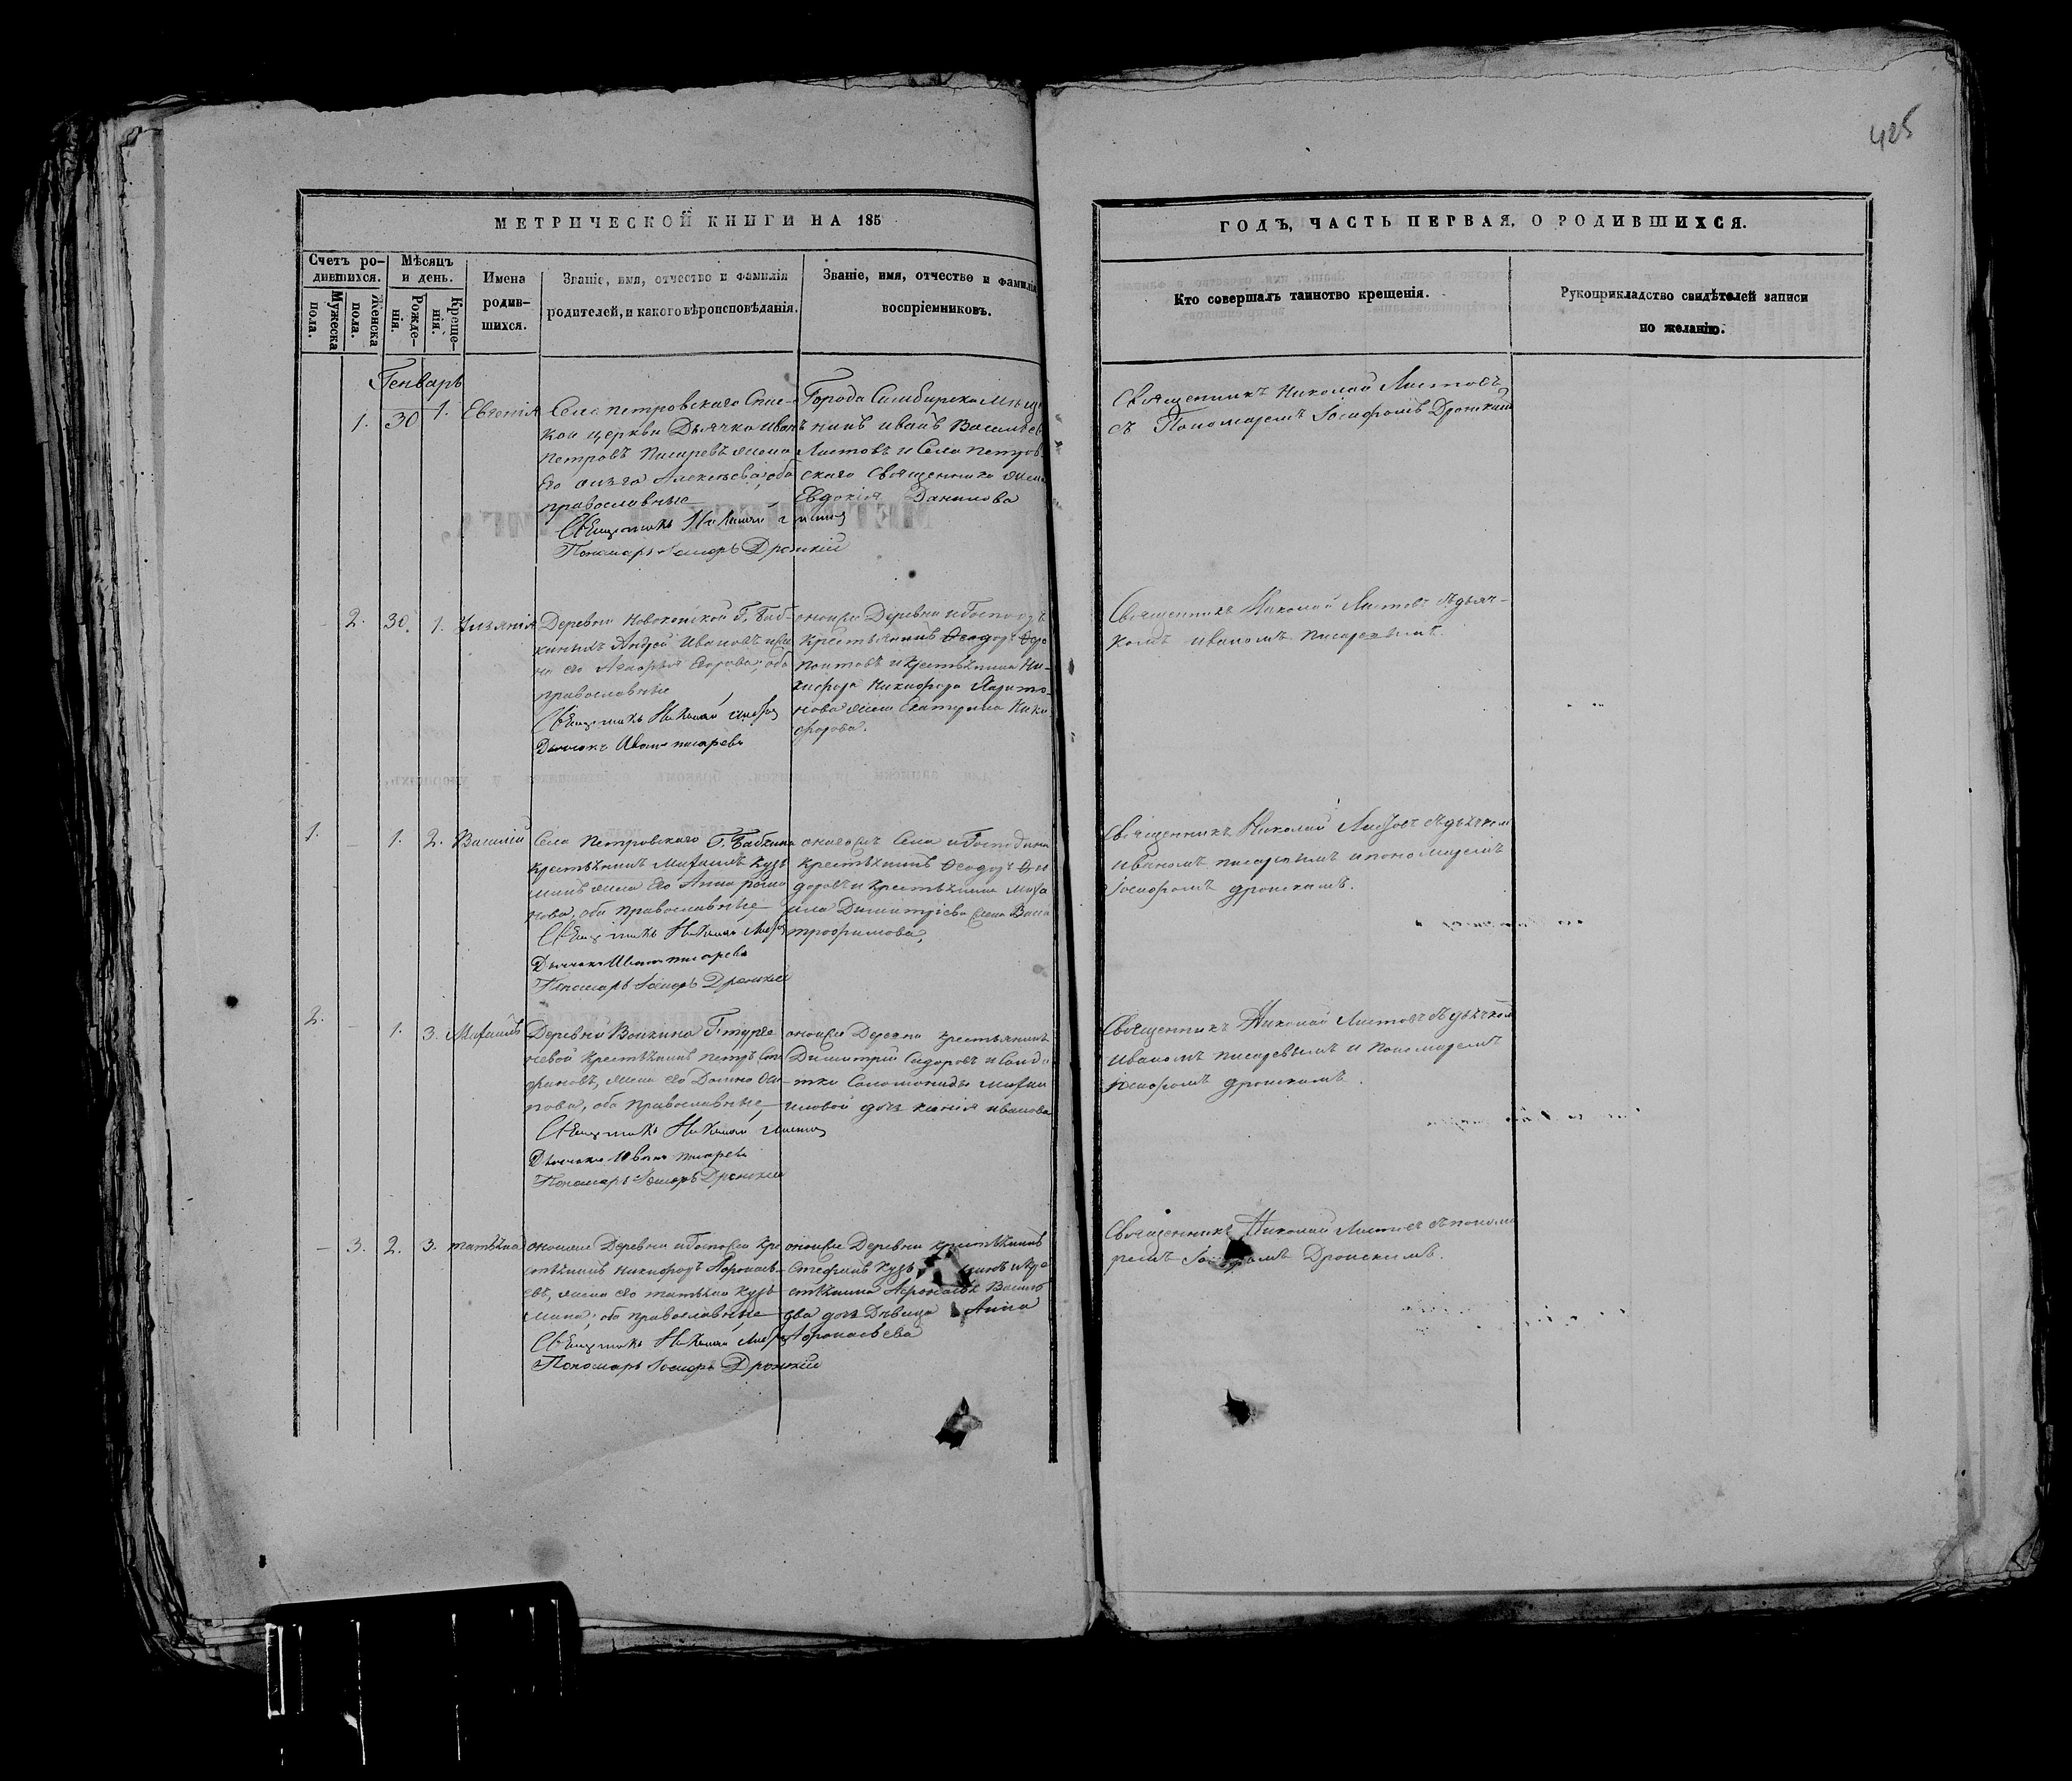 425
МЕТРИЧЕСКОЙ КНИГИ НА 185
ГОДЪ, ЧАСТЬ ПЕРВАЯ, О РОДИВШИХСЯ.
Счетъ ро-
дившихся.
Мужеска
пола.
Женска
пола.
Мѣсяцъ
и день.
Рожде-
нія.
Креще-
нія.
Имена
родив-
шихся.
Званіе, имя, отчество и фамилія
родителей, и какого вѣроисповѣданія.
Званіе, имя, отчество и фамилія
воспріемниковъ.
Кто совершалъ таинство крещенія.
Рукоприкладство свидѣтелей записи
по желанію.
Генварь
1. 30 1. Евгенія
Села Петровскаго Спас-
кой церкви Дьячка Иванъ
Петровъ Писаревъ жена
Его Алексѣева, оба
православные
Священникъ Николай
Пономарь Іосифъ Дронскій
Города Симбирска Мѣща
нинъ Иванъ Васильевъ
Листовъ и Села Петров-
скаго Священника жена
Евдокія Данилова
Священникъ Николай Листовъ
съ Пономаремъ Іосифомъ Дронскимъ
2. 30. 1.
Деревни Г. Баб-
киныхъ Андрей Ивановъ и
на его Егорова, оба
православные
Священникъ Николай
Дьячокъ Иванъ Писаревъ
оной Деревни и Господъ
Крестьянинъ Ѳеодоръ
и Крестьянина Ни-
кифора Никифора Харито-
нова жена Екатерина Ники
форова.
Священникъ Николай Листовъ съ дьяч-
комъ Иваномъ Писаревымъ.
1. – 1. 2. Василій
Села Петровскаго Г. Бабкина
Крестьянинъ Михаилъ Кузь
минъ жена Его Анна Рома
нова, оба Православные
Священникъ Николай Листовъ
Дьячокъ Иванъ Писаревъ
Пономарь Іосифъ Дронскій
Села и Господина
Крестьянинъ Ѳеодоръ Ѳео
доровъ и Крестьянина Миха
ила Димитріева жена
Трофимова,
Священникъ Николай Листовъ съ дьячкомъ
Иваномъ Писаревымъ и пономаремъ
Іосифомъ Дронскимъ.
2. – 1. 3. Михаилъ
Деревни Воикина Г. Турге
невой Крестьянинъ Петръ
жена его Домна Оси-
пова, оба Православные
Священникъ Николай Листовъ
Дьячокъ Иванъ Писаревъ
Пономарь Іосифъ Дронскій
оной Деревни Крестьянинъ
Димитрій Сидоровъ и Солда
тки Соломониды Михаи
ловой дочь Ксенія Иванова
Священникъ Николай Листовъ съ дьячкомъ
Иваномъ Писаревымъ и Пономаремъ
Іосифомъ Дронскимъ.
– 3. 2. 3. Татьяна
Деревни и Госпожи Кре
стьянинъ Никифоръ Афонась-
евъ, жена его Татьяна Кузь
мина, оба Православные
Священникъ Николай Листовъ
Пономарь Іосифъ Дронскій
оной Деревни Крестьянинъ
Стефанъ Кузь минъ и Кре
стьянина Афонасья Василь
ева дочь Дѣвица Анна
Афонасьева
Священникъ Николай Листовъ съ понома
ремъ Іосифомъ Дронскимъ.